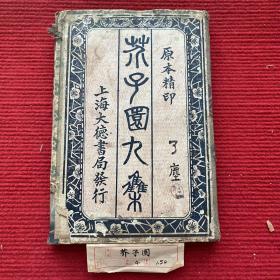 原本精印
了塵
芥子園九集
上海大德書局發行
芥子園
150